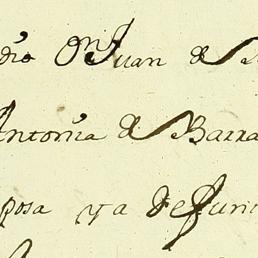 dio Dn Juan de
Antonia de Barra
posa ya defun